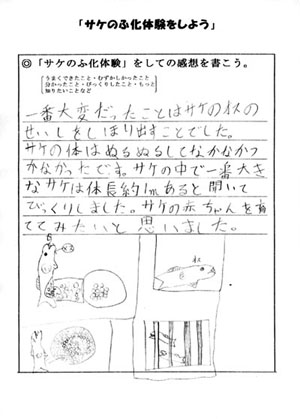 「サケのふ化体験をしよう」
◎「サケのふ化体験」をしての感想を書こう。
うまくできたこと・むずかしかったこと
分かったこと・びっくりしたこと・もっと
知りたいことなど
一番大変だったことはサケのオスの
せいしをしぼり出すことでした。
サケの体はぬるぬるしてなかなかつ
かなかったです。サケの中で一番大き
なサケは体長約1mあると聞いて
びっくりしました。サケの赤ちゃんを育
ててみたいと思いました。